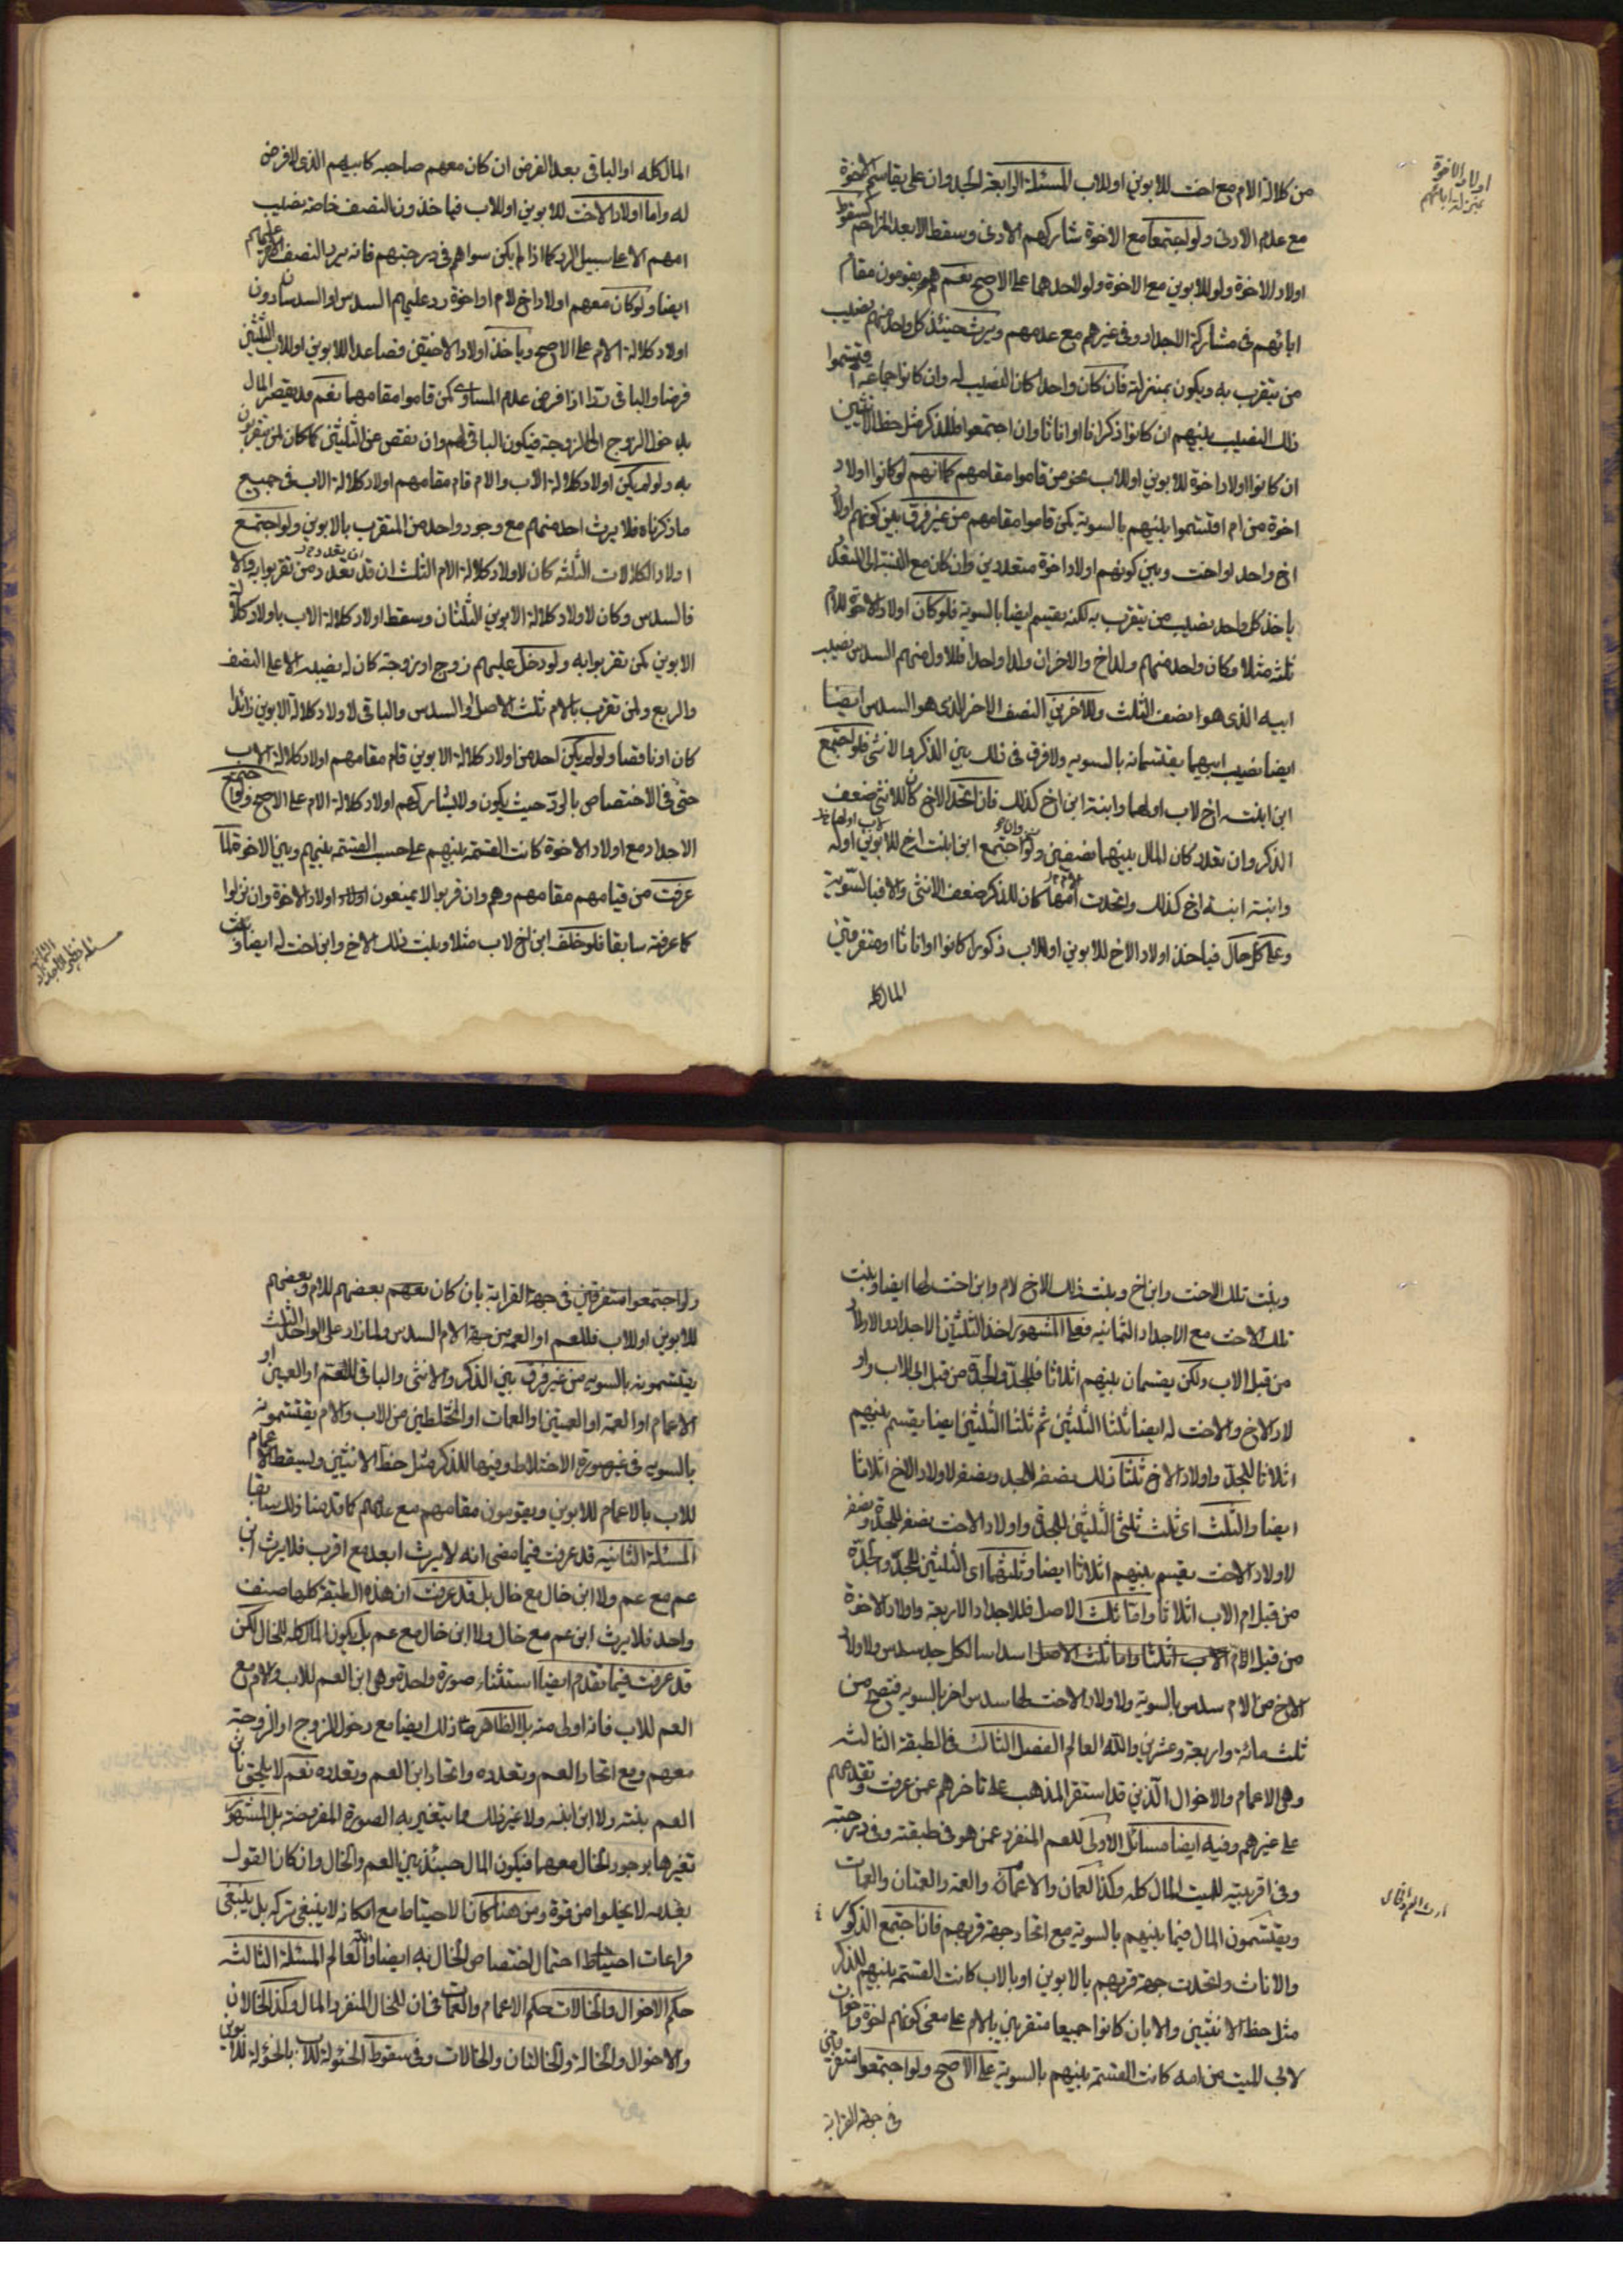 اولاد الاخوة
بمنزلة ابائهم
من كلالة الام مع اخت للابوين او للاب المسئلة الرابعة الجد وان على يقاسم الاخوة
مع عدم الادنى ولو اجتمعا مع الاخوة شاركهم الادنى وسقط الابعد المزاحم كسقوط
اولاد الاخوة ولو للابوين مع الاخوة ولو لاحدهما على الاصح نعم هم يقومون مقام
ابائهم فى مشاركة الاجداد وفى غيرهم مع عدمهم ويرث حينئذ كل واحد منهم نصيب
من يتقرب به ويكون بمنزلته فان كان واحدا كان النصيب له وان كانوا جماعة اقتسموا
ذلك النصيب بينهم ان كانوا ذكرانا او اناثا وان اجتمعوا فللذكر مثل حظ الانثيين
ان كانوا اولاد اخوة للابوين او للاب نحو من قاموا مقامهم كما انهم لو كانوا اولاد
اخوة من ام اقتسموا بينهم بالسوية كمن قاموا مقامهم من غير فرق بين كونهم اولاد
اخ واحد او اخت وبين كونهم اولاد اخوة متعددين وان كان مع النسبة الى المتعدد
ياخذ كل واحد نصيب من يتقرب به لكنه يقسم ايضا بالسوية فلو كان اولاد الاخوة للام
ثلثة مثلا وكان واحد منهم ولد اخ والاخران ولدا واحدا فللاول منهم السدس نصيب
ابيه الذى هو نصف الثلث وللاخرين النصف الاخر الذى هو السدس ايضا
ايضا نصيب ابيهما يقتسمانه بالسويه ولا فرق فى ذلك بين الذكر والانثى فلو اجتمع
ابن ابنت اخ لاب اولهما وابنة ابن اخ كذلك فان اتحد الاخ كان للانثى ضعف
الذكر وان تعدد كان المال بينهما نصفين ولو اجتمع ابن ابنت اخ للابوين اوله
وابنة ابنة اخ كذلك واتحدت امهما كان للذكر ضعف الانثى والا فبالسّويّة
وعلى كل حال فياخذ اولاد الاخ للابوين او للاب ذكورا كانوا او اناثا او متفرقين
المال كله
المال كله او الباقى بعد الفرض ان كان معهم صاحبه كابيهم الذى لا فرض
له واما اولاد الاخت للابوين او للاب فياخذون النصف خاصة نصيب
امهم الا على سبيل الرد كما اذا لم يكن سواهم فى درجتهم فانه يرد النصف الاخر عليهم
ايضا ولو كان معهم اولاد اخ لام او اخوة رد عليهم السدس او السدسان دون
اولاد كلالة الام على الاصح وياخذ اولاد الاختين فصاعدا للابوين او للاب الثلثين
فرضا والباقى ردا اذا فرض عدم المساوى كمن قاموا مقامهما نعم قد يقصر المال
بدخول الزوج او الزوجة فيكون الباقى لهم وان نقص عن الثلثين كما كان لمن يتقربون
به ولو لم يكن اولاد كلالة الاب والام قام مقامهم اولاد كلالة الاب فى جميع
ما ذكرناه فلا يرث احد منهم مع وجود واحد من المتقرب بالابوين ولو اجتمع
اولاد الكلالات الثلثه كان لاولاد كلالة الام الثلث ان قد تعدد من تقربوا به والا
فالسدس وكان لاولاد كلالة الابوين الثلثان وسقط اولاد كلالة الاب باولاد كلالة
الابوين كمن تقربوا به ولو دخل عليهم زوج او زوجة كان له نصيبه الاعلى النصف
والربع ولمن تقرب بالام ثلث الاصل او السدس والباقى لاولاد كلالة الابوين زائدا
كان او ناقصا ولو لم يكن احد من اولاد كلالة الابوين قام مقامهم اولاد كلالة الاب
حتى فى الاختصاص بالردّ حيث يكون ولا يشاركهم اولاد كلالة الام على الاصح ولو اجتمع
الاجداد مع اولاد الاخوة كانت القسمة بينهم على حسب القسمة بينهم وبين الاخوة لما
عرفت من قيامهم مقامهم وهم وان قربوا لا يمنعون اولاد اولاد الاخوة وان نزلوا
كما عرفته سابقا فلو خلف ابن اخ لاب مثلا وبنت ذلك الاخ وابن اخت له ايضا وبنت
وبنت تلك الاخت وابن اخ وبنت ذلك الاخ لام وابن اخت لها ايضا وبنت
تلك الاخت مع الاجداد الثمانيه فعلى المشهور اخذ الثلثان الاجداد والاولاد
من قبل الاب ولكن يقسمان بينهم اثلاثا فللجدّ والجدّة من قبل اب الاب واو
لاد الاخ والاخت له ايضا ثلثا الثلثين ثم ثلثا الثلثين ايضا يقسم بينهم
اثلاثا للجدّ واولاد الاخ ثلثا ذلك نصفه للجد ونصفه لاولاد الاخ اثلاثا
ايضا والثلث اى ثلث ثلثى الثلثين للجدة واولاد الاخت نصفه للجدة ونصفه
لاولاد الاخت يقسم بينهم اثلاثا ايضا وثلثهما اى الثلثين للجدّ والجدّة
من قبل ام الاب اثلاثا واما ثلث الاصل فللاجداد الاربعة واولاد الاخوة
من قبل الام الاب اثلثا واما ثلث الاصل اسداسا لكل جد سدس ولاولاد
الاخ من الام سدس بالسوية ولاولاد الاخت لها سدس اخر بالسويه فتصح من
ثلث مائة واربعة وعشرين والله العالم الفصل الثالث فى الطبقة الثالثه
وهى الاعمام والاخوال الذين قد استقر المذهب على تاخرهم عمن عرفت وتقدمهم
على غيرهم وفيه ايضا مسائل الاولى للعم المنفرد عمن هو فى طبقته وفى درجته
وفى اقربيته للميت المال كله وكذا العمان والاعمام والعمة والعمتان والعمات
ويقتسمون المال فيما بينهم بالسوية مع اتحاد جهة قربهم فان اجتمع الذكور
والاناث واتحدت جهة قربهم بالابوين او بالاب كانت القسمة بينهم للذكر
مثل حظ الانثيين والا بان كانوا جميعا متقربين بالام على معنى كونهم اخوة واخوات
لابى الميت من امه كانت القسمة بينهم بالسوية على الاصح ولو اجتمعوا متفرقين
فى جهة القرابة
ولو اجتمعوا متفرقين فى جهة القرابة بان كان بعضهم للام وبعضهم
للابوين او للاب فللعم او العمه من جهة الام السدس ولما زاد على الواحد الثلث
يقتسمونه بالسويه من غير فرق بين الذكر والانثى والباقى للعم او العمين او
الاعمام او العمة او العمتين او العمات او المختلطين من الاب والام يقتسمونه
بالسويه فى غير صورة الاختلاط وفيها للذكر مثل حظ الانثيين ويسقط الاعمام
للاب بالاعمام للابوين ويقومون مقامهم مع عدمهم كما قدمنا ذلك سابقا
المسئلة الثانيه قد عرفت فيما مضى انه لا يرث ابعد مع اقرب فلا يرث ابن
عم مع عم ولا ابن خال مع خال بل قد عرفت ان هذه الطبقة كلها صنف
واحد فلا يرث ابن عم مع خال ولا ابن خال مع عم بل يكون المال كله للخال لكن
قد عرفت فيما تقدم ايضا استثناء صورة واحدة وهى ابن العم للاب والام مع
العم للاب فانه اولى منه بل الظاهر ذلك ايضا مع دخول الزوج او الزوجة
معهم ومع اتحاد العم وتعدده واتحاد ابن العم وتعدده نعم لا يلحق بابن
العم بنته ولا ابن ابنه ولا غير ذلك مما يتغير به الصورة المفروضة بل المشهور
تغيرها بوجود الخال معهما فيكون المال حينئذ بين العم والخال وان كان القول
بعدمه لا يخلوا من قوة ومن هنا كان الاحتياط مع امكانه لا ينبغى تركه بل ينبغى
مراعات احتياط احتمال اختصاص الخال به ايضا والله العالم المسئلة الثالثه
حكم الاخوال والخالات حكم الاعمام والعمات فان للخال المنفرد المال وكذا الخالان
والاخوال والخالة والخالتان والخالات وفى سقوط الخئولة للاب بالخئولة للابوين